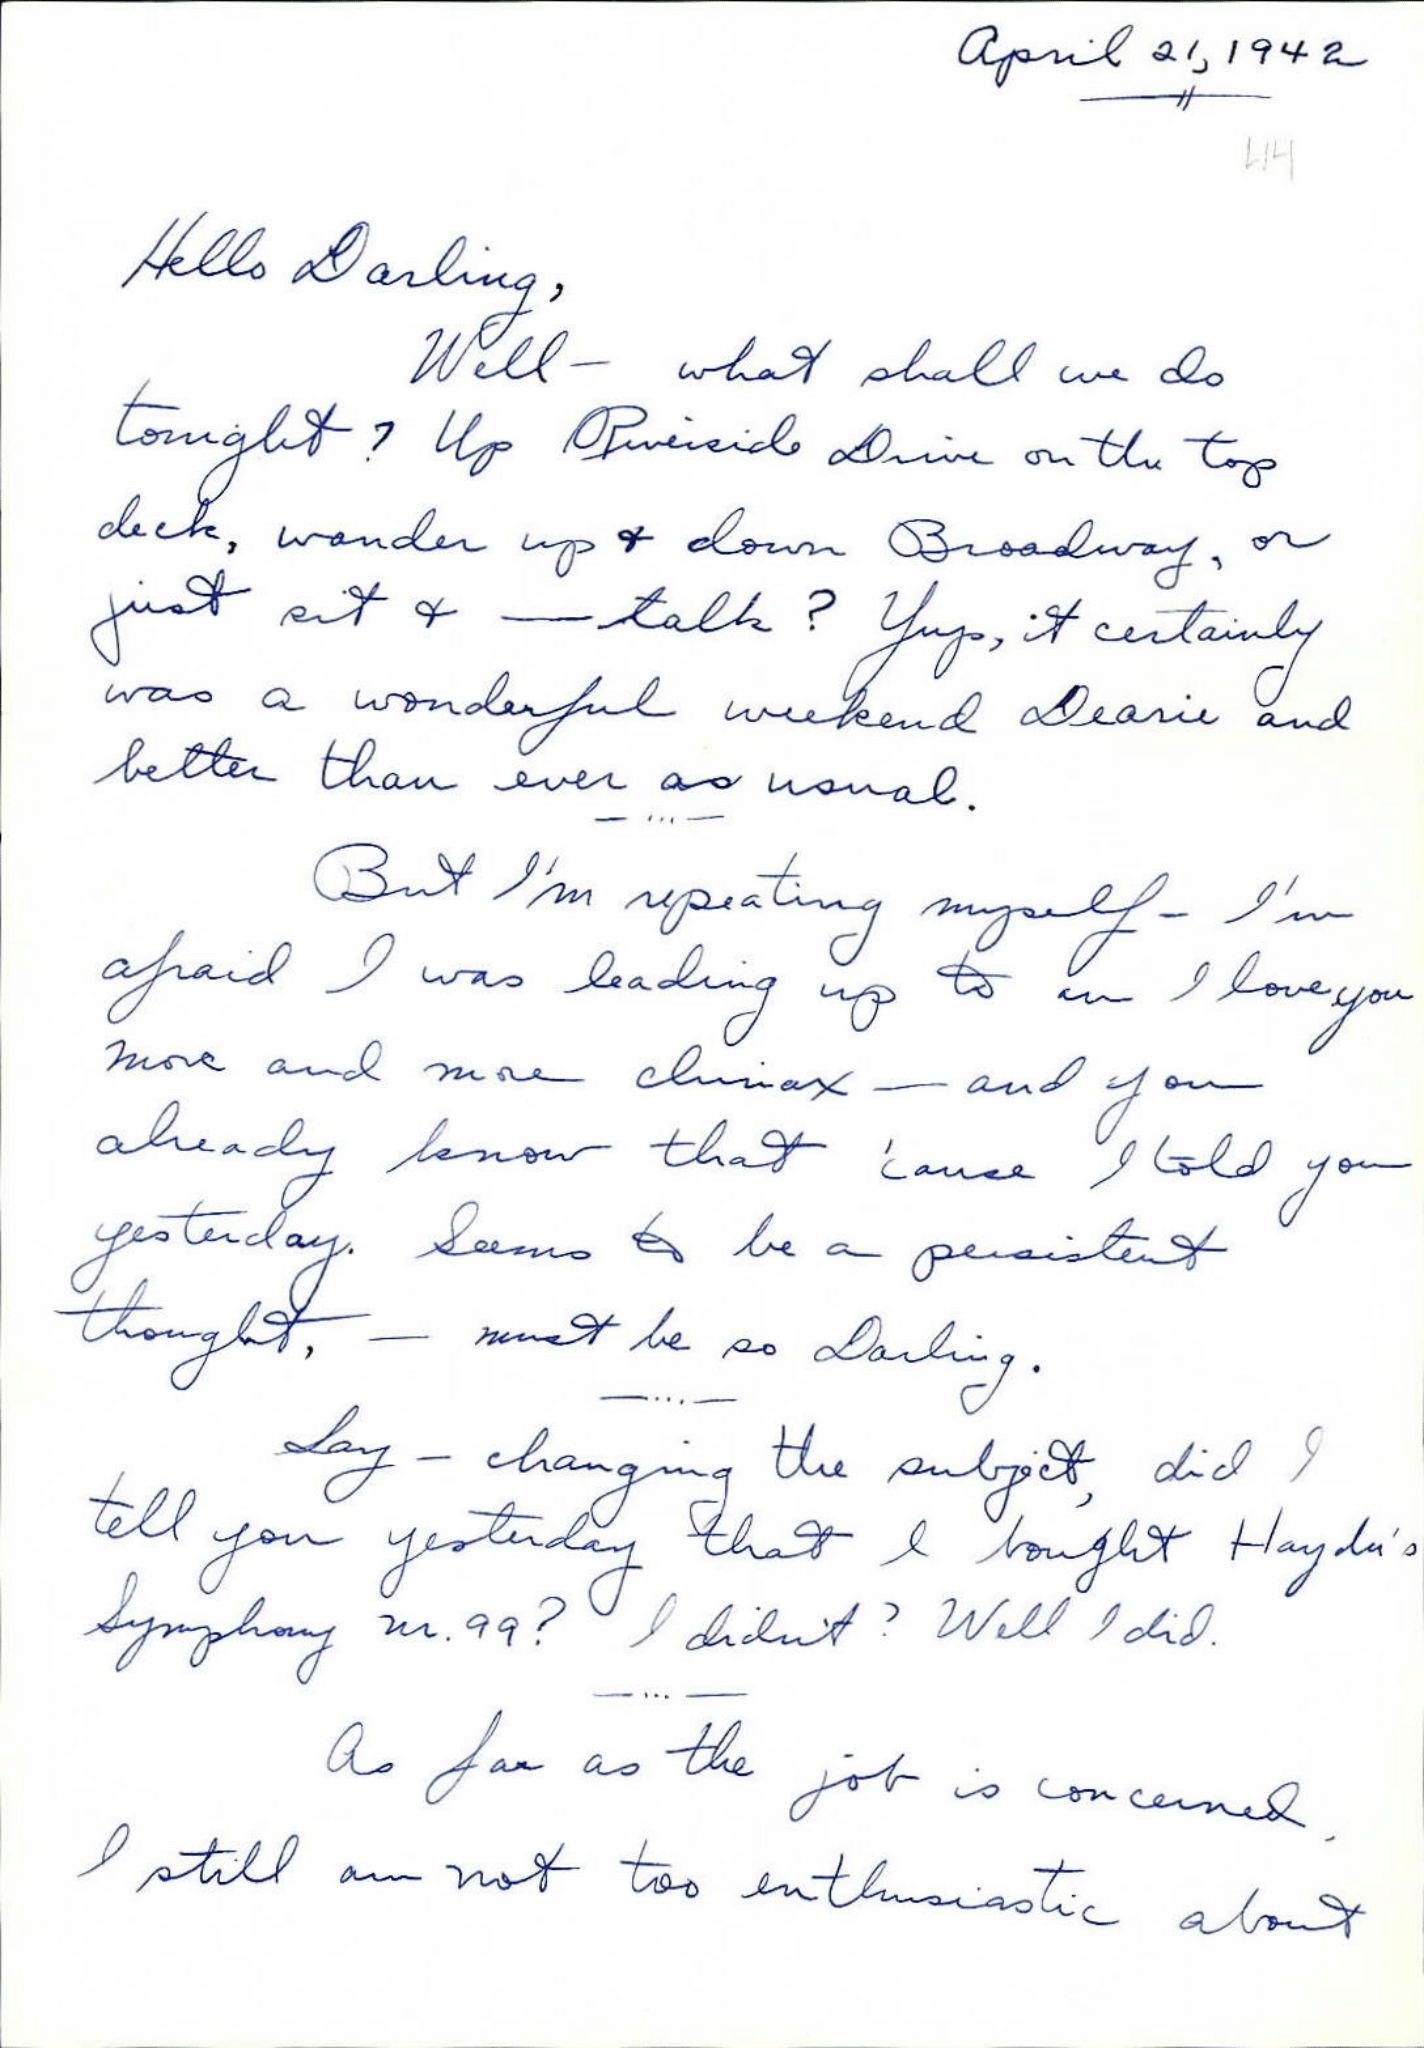 April 21, 1942
414
Hello Darling,
Well — what shall we do
tonight? Up Riverside Drive on the top
deck, wander up & down Broadway, or
just sit & — talk? Yup, it certainly
was a wonderful weekend Dearie and
better than ever as usual.
— ... —
But I'm repeating myself — I'm
afraid I was leading up to an I love you
more and more climax — and you
already know that 'cause I told you
yesterday. Seems to be a persistent
thought, — must be so Darling.
— ... —
Say — changing the subject, did I
tell you yesterday that I bought Haydn's
Symphony nr. 99? I didn't? Well I did.
— ... —
As far as the job is concerned,
I still am not too enthusiastic about